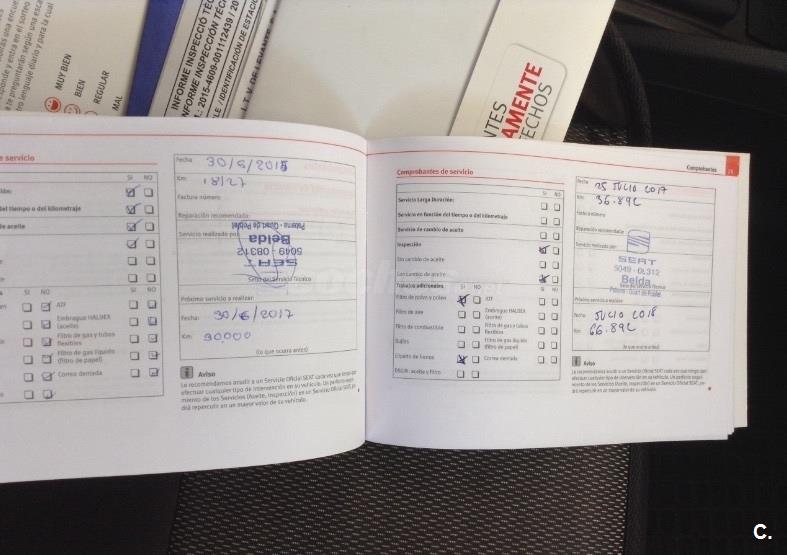 MUY BIEN
BIEN
REGULAR
MAL
INFORME INSPECCIÓ TÈC
INFORME INSPECCIÓN TÉCN
2015-4609-001112439 / 20
/ IDENTIFICACIÓN DE ESTACIÓ
I. T. V. DE LEVANTE
NTES
AMENTE
TECHOS
e servicio
SI NO
del tiempo o del kilometraje
de aceite
SI NO
SI NO
ATF
Embrague HALDEX
(aceite)
Filtro de gas y tubos
flexibles
Filtro de gas líquido
(filtro de papel)
Correa dentada
Fecha: 30/6/2015
Km:
Factura número
Reparación recomendada:
Servicio realizado por:
SEAT
5049 - 08312
Belda
Paterna - Quart de Poblet
Sello del Servicio Técnico
Próximo servicio a realizar:
Fecha: 30/6/2017
Km: 30,000
(lo que ocurra antes)
Aviso
Le recomendamos acudir a un Servicio Oficial SEAT cada vez que tenga que
efectuar cualquier tipo de intervención en su vehículo. Un perfecto segui-
miento de los Servicios (Aceite, Inspección) en un Servicio Oficial SEAT, po-
drá repercutir en un mayor valor de su vehículo.
Comprobantes
Comprobantes de servicio
SI NO
Servicio Larga Duración:
Servicio en función del tiempo o del kilometraje
Servicio de cambio de aceite
Inspección
Sin cambio de aceite
Con cambio de aceite
Trabajos adicionales
SI NO
SI NO
Filtro de polvo y polen
ATF
Filtro de aire
Embrague HALDEX
(aceite)
Filtro de combustible
Filtro de gas y tubos
flexibles
Bujías
Filtro de gas líquido
(filtro de papel)
Líquido de frenos
Correa dentada
DSG®: aceite y filtro
Fecha: 25 JULIO 2017
Km: 36.892
Factura número
Reparación recomendada:
Servicio realizado por:
SEAT
5049 - 0L312
Belda
Sello del Servicio Técnico
Paterna - Quart de Poblet
Próximo servicio a realizar:
Fecha: JULIO 2018
Km: 66.892
(lo que ocurra antes)
Aviso
Le recomendamos acudir a un Servicio Oficial SEAT cada vez que tenga que
efectuar cualquier tipo de intervención en su vehículo. Un perfecto segui-
miento de los Servicios (Aceite, Inspección) en un Servicio Oficial SEAT, po-
drá repercutir en un mayor valor de su vehículo.
C.